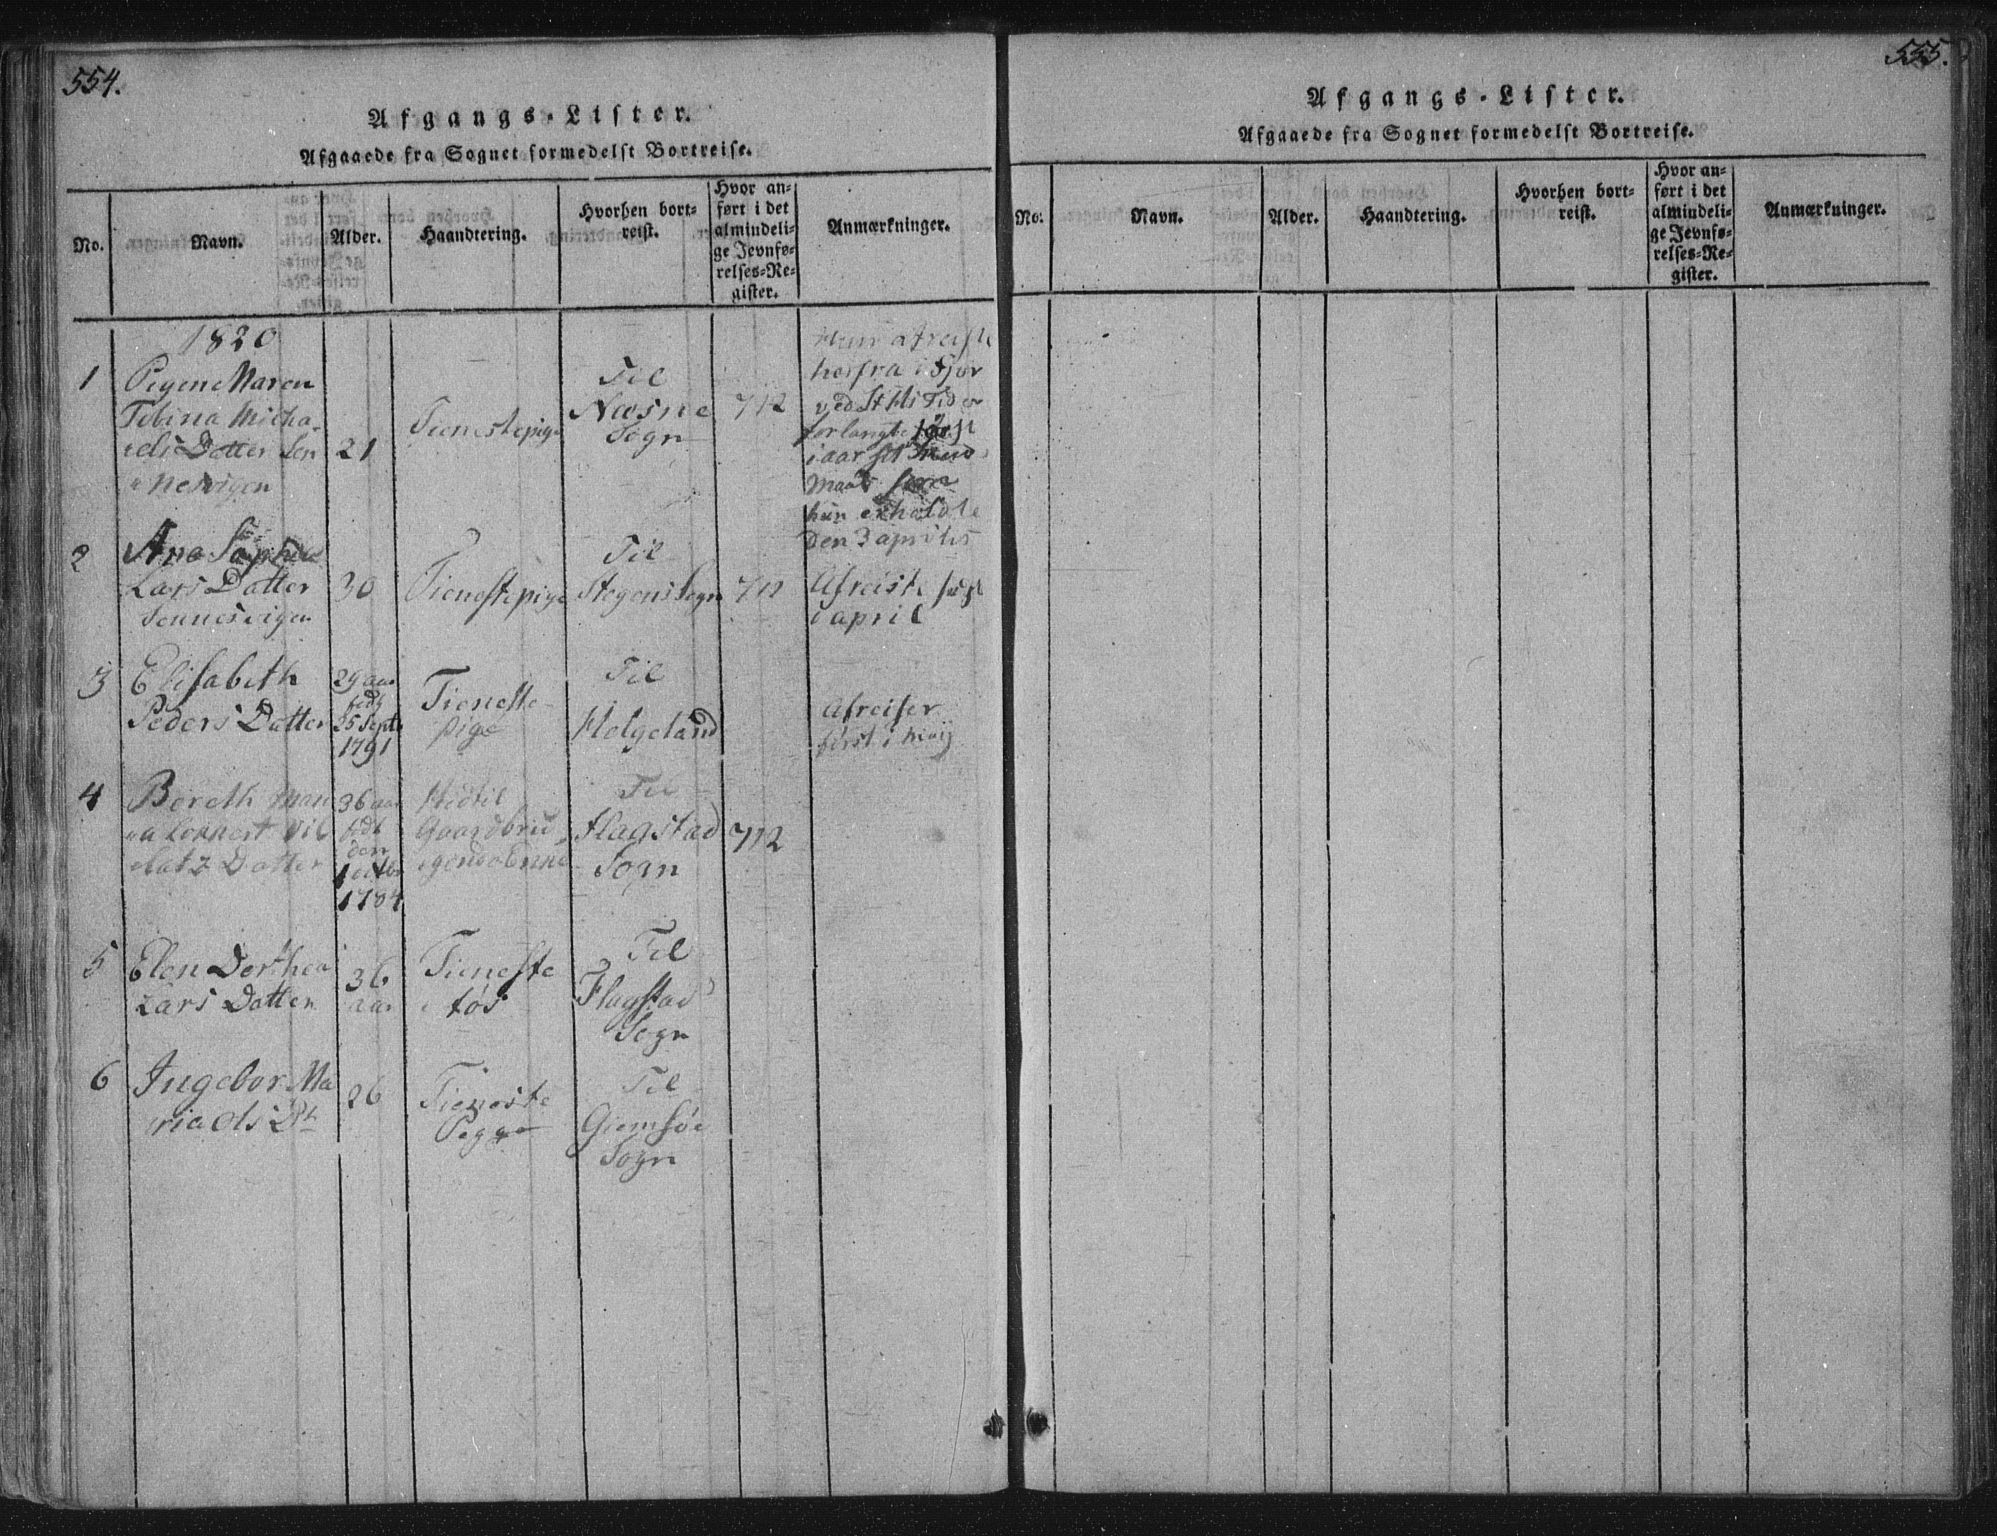 554.
Afgangs-Lister.
Afgaaede fra Sognet formedelst Bortreise.
No.
Navn.
Alder.
Haandtering.
Hvorhen bort-
reist.
Hvor an-
ført i det
almindeli-
ge Jevnfø-
relses-Re-
gister.
Anmærkninger.
1820
1
Pigen Maren
Tobina Micha-
elis Datter Sen
nesvigen
21
Tienestepige
Til
Næsne
Sogn
712
Hun afreiste
herfra i Fjor
ved St Hs Tid
forlangte først
i aar sit
hun erholdte
den 3 aprilis
2
Ana Sophia
Lars Datter
Sennesvigen
30
Tienestepige
Til
Stegens Sogn
712
Afreiste sidst
i april
3
Elisabeth
Peders Datter
29 aar
født
25 Septr
1791
Tieneste-
pige
Til
Helgeland
Afreiser
først i Maij
4
Bereth Mari
a Lennert Vil
latz Datter
36 aar
født
den
1 octbr
1784
Hidtil
Gaardbru
gende
Til
Flagstad
Sogn
712
5
Elen Dorthea
Lars Datter
36
aar
Tieneste
tøs
Til
Flagstad
Sogn
6
Ingebor Ma
ria Ols Dt
26
Tieneste
Pige
Til
Giemsøe
Sogn
555.
Afgangs-Lister.
Afgaaede fra Sognet formedelst Bortreise.
No.
Navn.
Alder.
Haandtering.
Hvorhen bort-
reist.
Hvor an-
ført i det
almindeli-
ge Jevnfø-
relses-Re-
gister.
Anmærkninger.